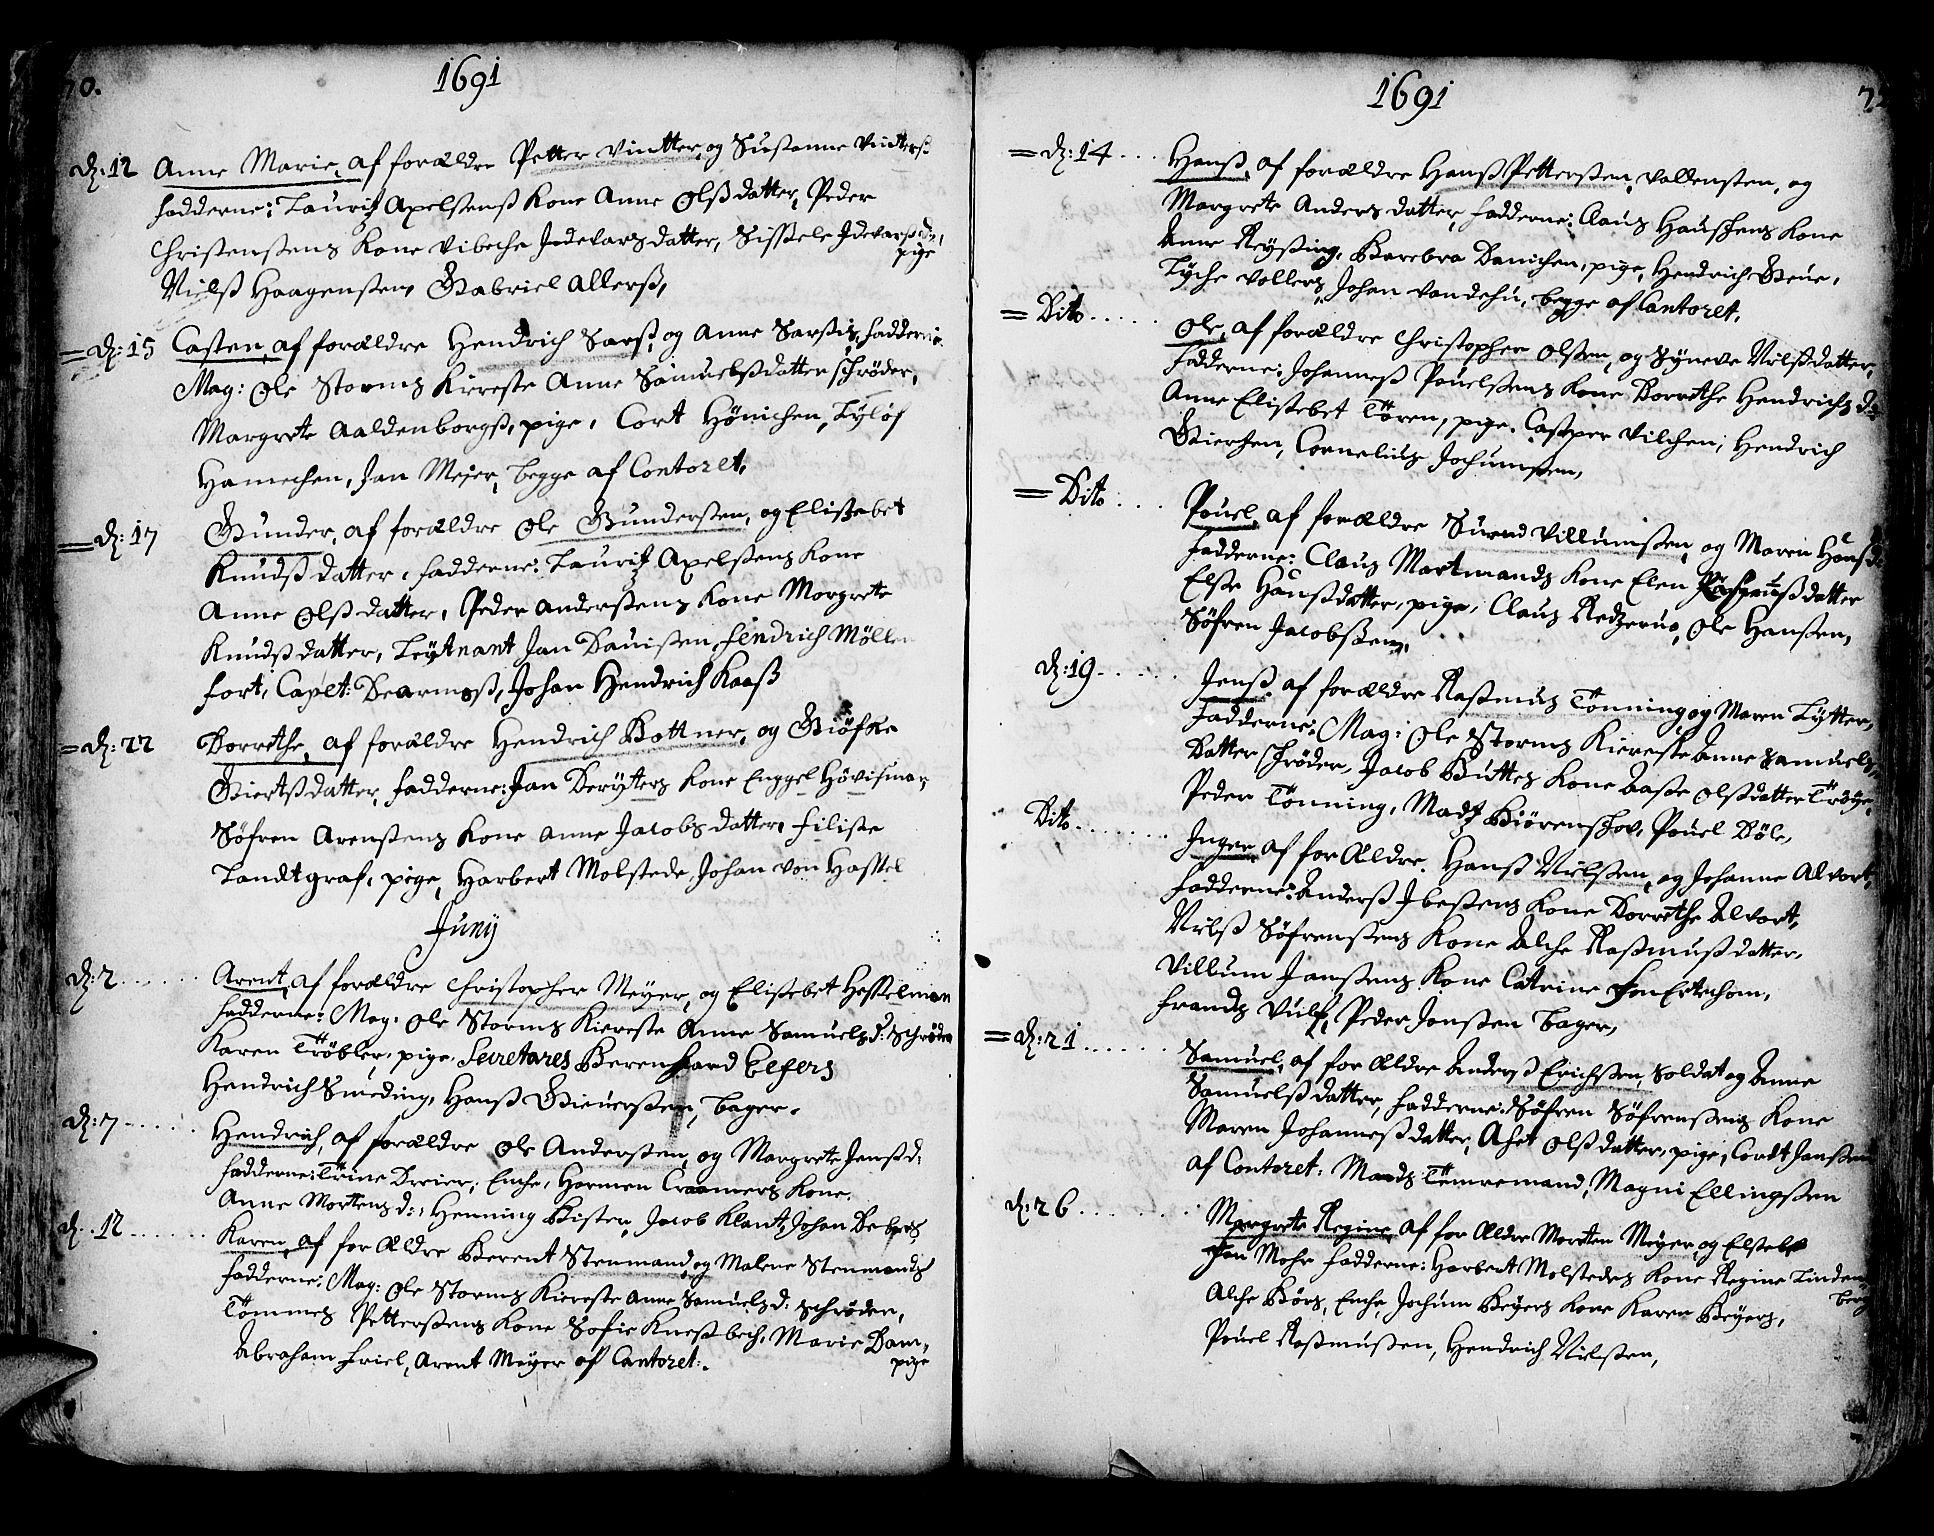 70.
1691
d: 12 Anne Marie, af forældre Petter Vintter, og Susanne Vintterß
fadderne: Lauritz Axelsenß Kone Anne Olßdatter, Peder
Christensens Kone Vibeche Idevarsdatter, Sissele
pige
Nielß Haagensen, Gabriel Allerß,
= d: 15 Casten, af forældre Hendrich Sarß, og Anne Sarßis, fadderne
Mag: Ole Storms Kiereste Anne Samuelßdatter Schrøder,
Margrete Aaldenborgß, pige, Cort Hönichen, Tyløf
Hamechen, Jan Mejer, begge af Contoret,
= d: 17 Gunder, af forældre Ole Gundersen, og Elisebet
Knudßdatter, fadderne: Lauritz Axelsens Kone
Anne Olßdatter, Peder Andersens Kone Morgrete
Knudßdatter, Leytnant Jan Davissen, fendrich Møllen
fort, Capet: Dearmoß, Johan Hendrich Kaaß
= d: 22 Dorrethe, af forældre Hendrich Bottner, og Giøfke
Giertßdatter, fadderne: Jan Deryters Kone Enggel Hövismar,
Söfren Arensens Kone Anne Jacobsdatter, filiske
Landtgraf, pige, Harbert Molstede, Johan von Hassel
Juny
d: 2 Arent, af forældre Christopher Meyer, og Elisebet Hesselman
fadderne: Mag: Ole Storms Kiereste Anne Samuelsd: Schrøder
Karen Tröbler, pige, Secretares Berenhard Elfers
Hendrich Smeding, Hanß Gieuersen, bager.
d: 7 Hendrich, af forældre Ole Andersen, og Margrete Jensd:
fadderne: Trine Dreier, Enche, Harmen Craamers Kone,
Anne Mortens d:, Henning Bisten, Jacob Klant, Johan Debers
d: 12 Karen, af for Ældre Berent Stenmand, og Malene Stenmands
fadderne: Mag: Ole Storms Kiereste Anne Samuelsd: Schrøder,
Tömmes Pettersens Kone Sofie Kneßbech, Marie Dam,
pige
Abraham friel, Arent Meyer af Contoret.
1691
= d: 14 Hanß, af forældre Hanß Pettersen, Vollensten, og
Margrete Anders datter, fadderne: Claus Hanschens Kone
Anne Reysing, Barebra Danichen, pige, Hendrich Steue,
Tyche Vollers, Johan Vandehu, begge af Contoret.
= Dito Ole, af forældre Christopher Olsen, og Syneve Nielßdatter,
fadderne: Johanneß Pouelsens Kone Dorrethe Hendrichs d:
Anne Elisebet Tören, pige, Casper Vilchen, Hendrich
Gierchen, Cornelius Jochumsen,
= Dito Pouel, af forældre Suend Villumsen, og Maren Hansd
fadderne: Claus Martmands Kone Elen datter
Else Hansßdatter, pige, Claus Redzerus, Ole Hansen,
Söfren Jacobsen,
d: 19 Jenß, af forældre Rasmus Tönning, og Maren Lytter,
fadderne: Mag: Ole Storms Kiereste Anne Samuels
Datter Schrøder, Jacob Büttes Kone Aase Olßdatter Tröye,
Peder Tönning, Madz Biörenskov, Pouel Böle,
Dito Inger, af for Ældre Hanß Nielsen, og Johanne Alvort,
fadderne: Anderß Ibesens Kone Dorrethe Alvort,
Nielß Söfrensens Kone Alche Rasmußdatter,
Villum Jansens Kone Catrine fon Ertechom,
frands Vulf, Peder Jonsen bager,
= d: 21 Samuel, af for Ældre Anderß Erichsen, Soldat og Anne
Samuelßdatter, fadderne: Söfren Söfrensens Kone
Maren Johanneßdatter, Ahet Olßdatter, pige, Cordt Jansen
af Contoret: Mands Temremand, Magni Ellingsen
d: 26 Margrete Regine, af for Ældre Morten Meyer, og Elsebe
fon Mohr fadderne: Harbert Molstedes Kone Regine Linden
berg
Alche Börs, Enche, Jochum Beyers Kone Karen Beyers,
Pouel Rasmußen, Hendrich Nielsen,